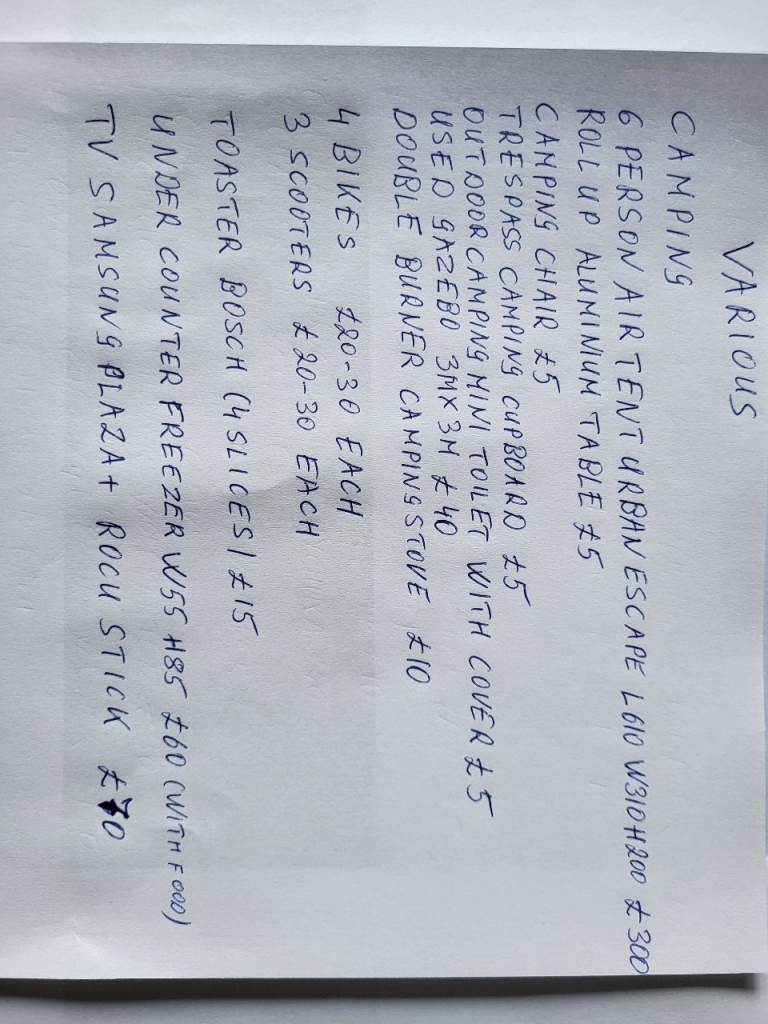 VARIOUS
CAMPING
6 PERSON AIR TENT URBAN ESCAPE L610 W310 H200 £300
ROLL UP ALUMINIUM TABLE £5
CAMPING CHAIR £5
TRESPASS CAMPING CUPBOARD £5
OUTDOOR CAMPING MINI TOILET WITH COVER £5
USED GAZEBO 3MX3M £40
DOUBLE BURNER CAMPING STOVE £10
4 BIKES £20-30 EACH
3 SCOOTERS £20-30 EACH
TOASTER BOSCH (4 SLICES) £15
UNDER COUNTER FREEZER W55 H85 £60 (WITH FOOD)
TV SAMSUNG PLAZA + ROCU STICK £70